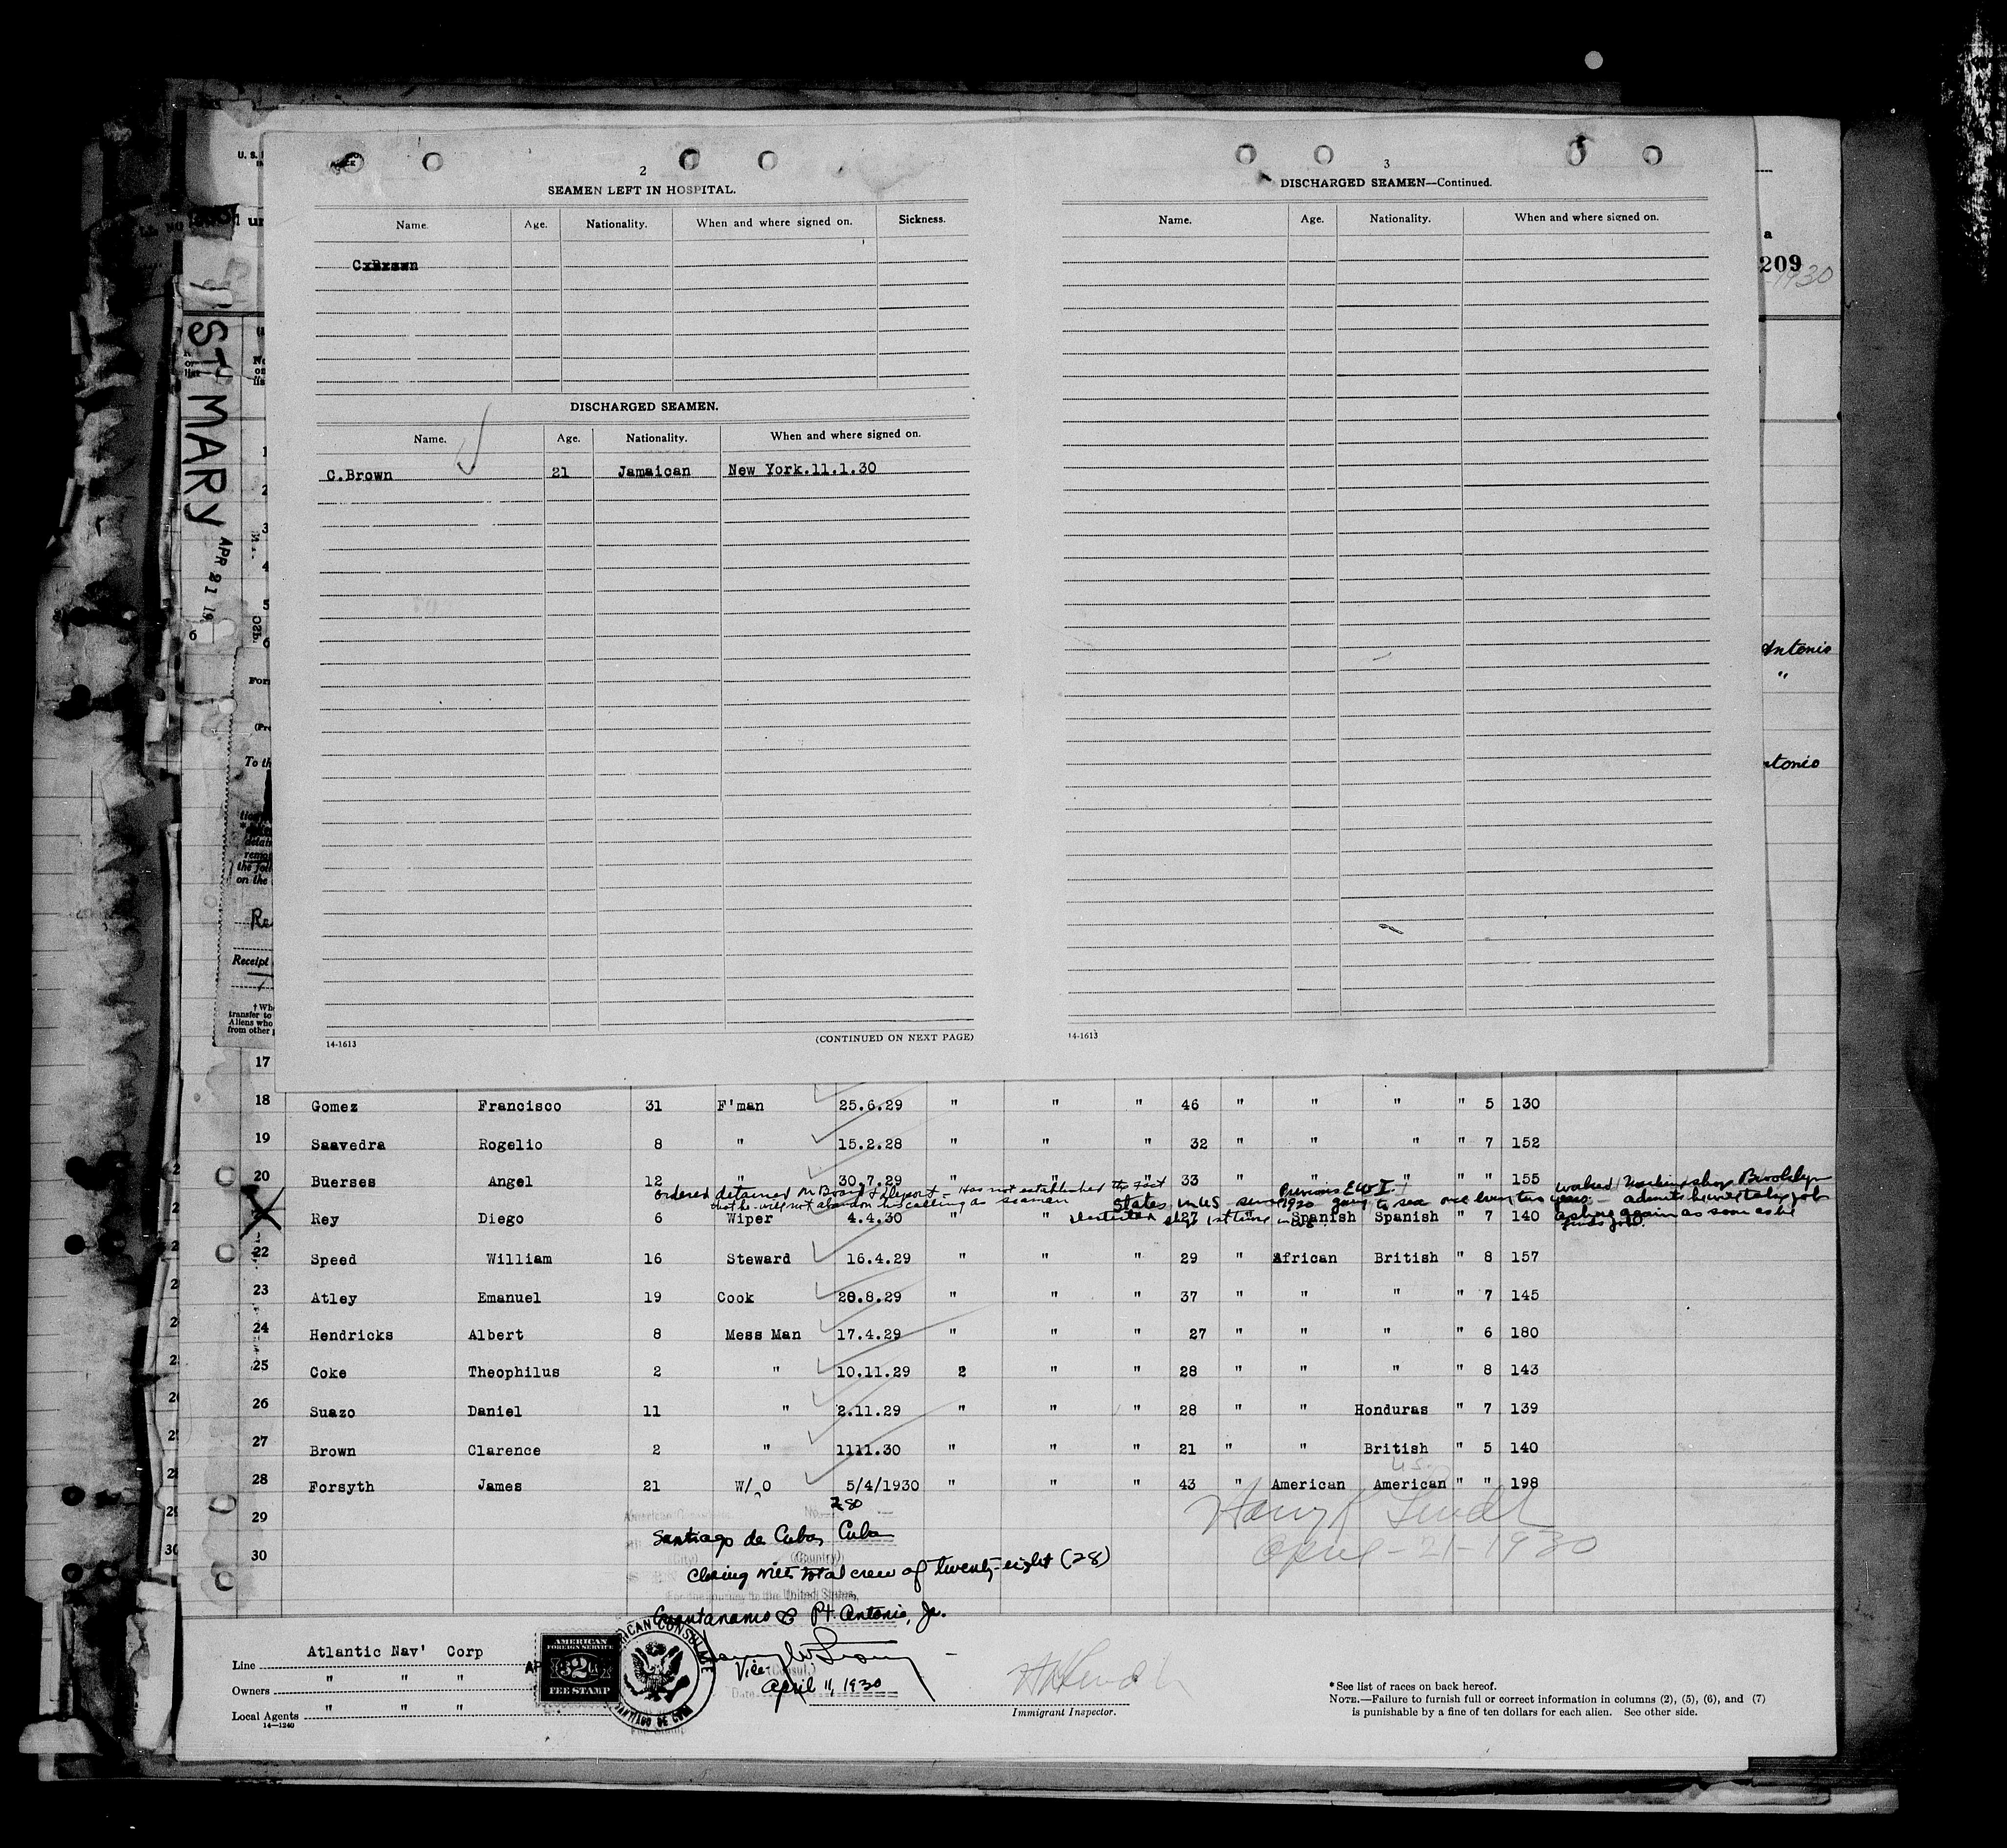 2
SEAMEN LEFT IN HOSPITAL.
Name. Age. Nationality. When and where signed on. Sickness.
DISCHARGED SEAMEN.
Name. Age. Nationality. When and where signed on.
C.Brown 21 Jamaican New York.11.1.30
14-1613 (CONTINUED ON NEXT PAGE)
3
DISCHARGED SEAMEN—Continued.
Name. Age. Nationality. When and where signed on.
14-1613
a
209
1930
ST MARY APR 21 19
Antonio
"
ntonio
To th
detai
remo
the foll
on the
Receipt
† Wh
transfer to
Aliens who
from other
17
18 Gomez Francisco 31 F'man 25.6.29 " " " 46 " " " " 5 130
19 Saavedra Rogelio 8 " 15.2.28 " " " 32 " " " " 7 152
20 Buerses Angel 12 " 30.7.29 " " " 33 " " " " " 155
ordered detained on Board & Deport - Has not established the fact
that he will not abandon his calling as seaman
States in US since 1920 going to sea once every two years - admits he will take job
ashore again as soon as he
finds job.
Rey Diego 6 Wiper 4.4.30 " " 27 " Spanish Spanish " 7 140
22 Speed William 16 Steward 16.4.29 " " " 29 " African British " 8 157
23 Atley Emanuel 19 Cook 20.8.29 " " " 37 " " " " 7 145
24 Hendricks Albert 8 Mess Man 17.4.29 " " " 27 " " " " 6 180
25 Coke Theophilus 2 " 10.11.29 2 " " 28 " " " " 8 143
26 Suazo Daniel 11 " 2.11.29 " " " 28 " " Honduras " 7 139
27 Brown Clarence 2 " 1111.30 " " " 21 " " British " 5 140
U.S.
28 Forsyth James 21 W/O 5/4/1930 " " " 43 " American American " " 198
29
30
280
Santiago de Cuba, Cuba
(City) (Country)
Closing with total crew of twenty-eight (28)
Guantanamo & Pt. Antonio, Ja.
Vice (Consul.)
April 11, 1930
April-21-1930
Line Atlantic Nav' Corp
Owners " " "
Local Agents " " "
14—1240
AMERICAN
FOREIGN SERVICE
$2
FEE STAMP
AMERICAN CONSULATE
SANTIAGO DE CUBA
Immigrant Inspector.
*See list of races on back hereof.
NOTE.—Failure to furnish full or correct information in columns (2), (5), (6), and (7)
is punishable by a fine of ten dollars for each alien. See other side.